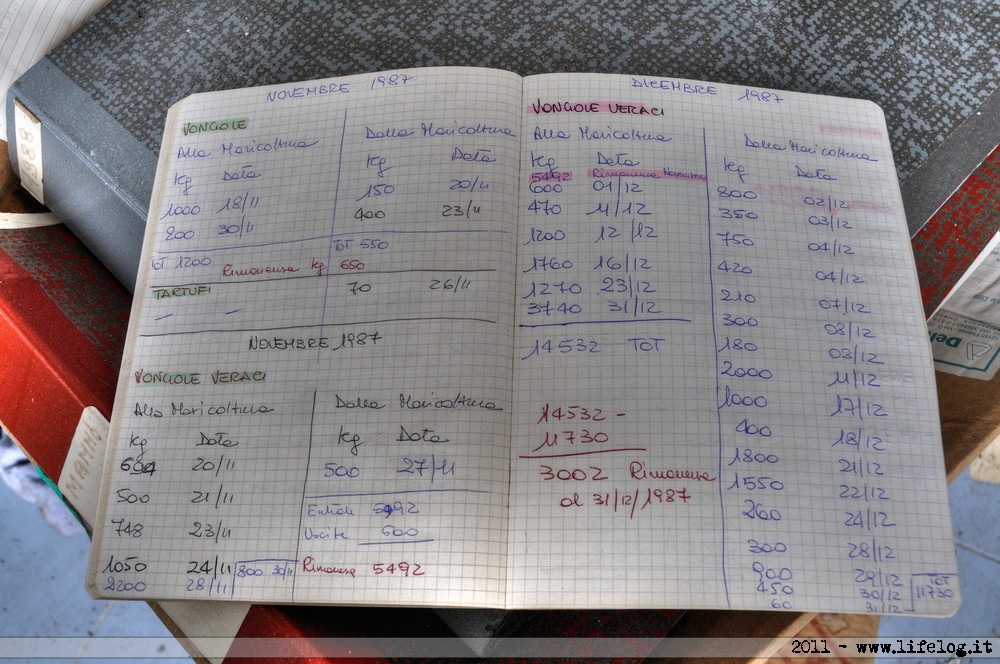 NOVEMBRE 1987
VONGOLE
Alla Maricoltura
Kg Data
1000 18/11
200 30/11
TOT 1200
Dalla Maricoltura
Kg Data
150 20/11
400 23/11
TOT 550
Rimanenza Kg 650
TARTUFI
— —
70 26/11
NOVEMBRE 1987
VONGOLE VERACI
Alla Maricoltura
Kg Data
694 20/11
500 21/11
748 23/11
1050 24/11
2200 28/11
800 30/11
Dalla Maricoltura
Kg Data
500 27/11
Entrate 5992
Uscite 500
Rimanenza 5492
DICEMBRE 1987
VONGOLE VERACI
Alla Maricoltura
Kg Data
5492 Rimanenza Novembre
600 01/12
470 11/12
1200 12/12
1760 16/12
1270 23/12
3740 31/12
14532 TOT
14532 -
11730
3002 Rimanenza
al 31/12/1987
Dalla Maricoltura
Kg Data
800 02/12
350 03/12
750 04/12
420 04/12
210 07/12
300 08/12
180 09/12
2000 11/12
1000 17/12
400 18/12
1800 21/12
1550 22/12
260 24/12
300 28/12
900 29/12
450 30/12
60 31/12
TOT
11730
2011 - www.lifelog.it